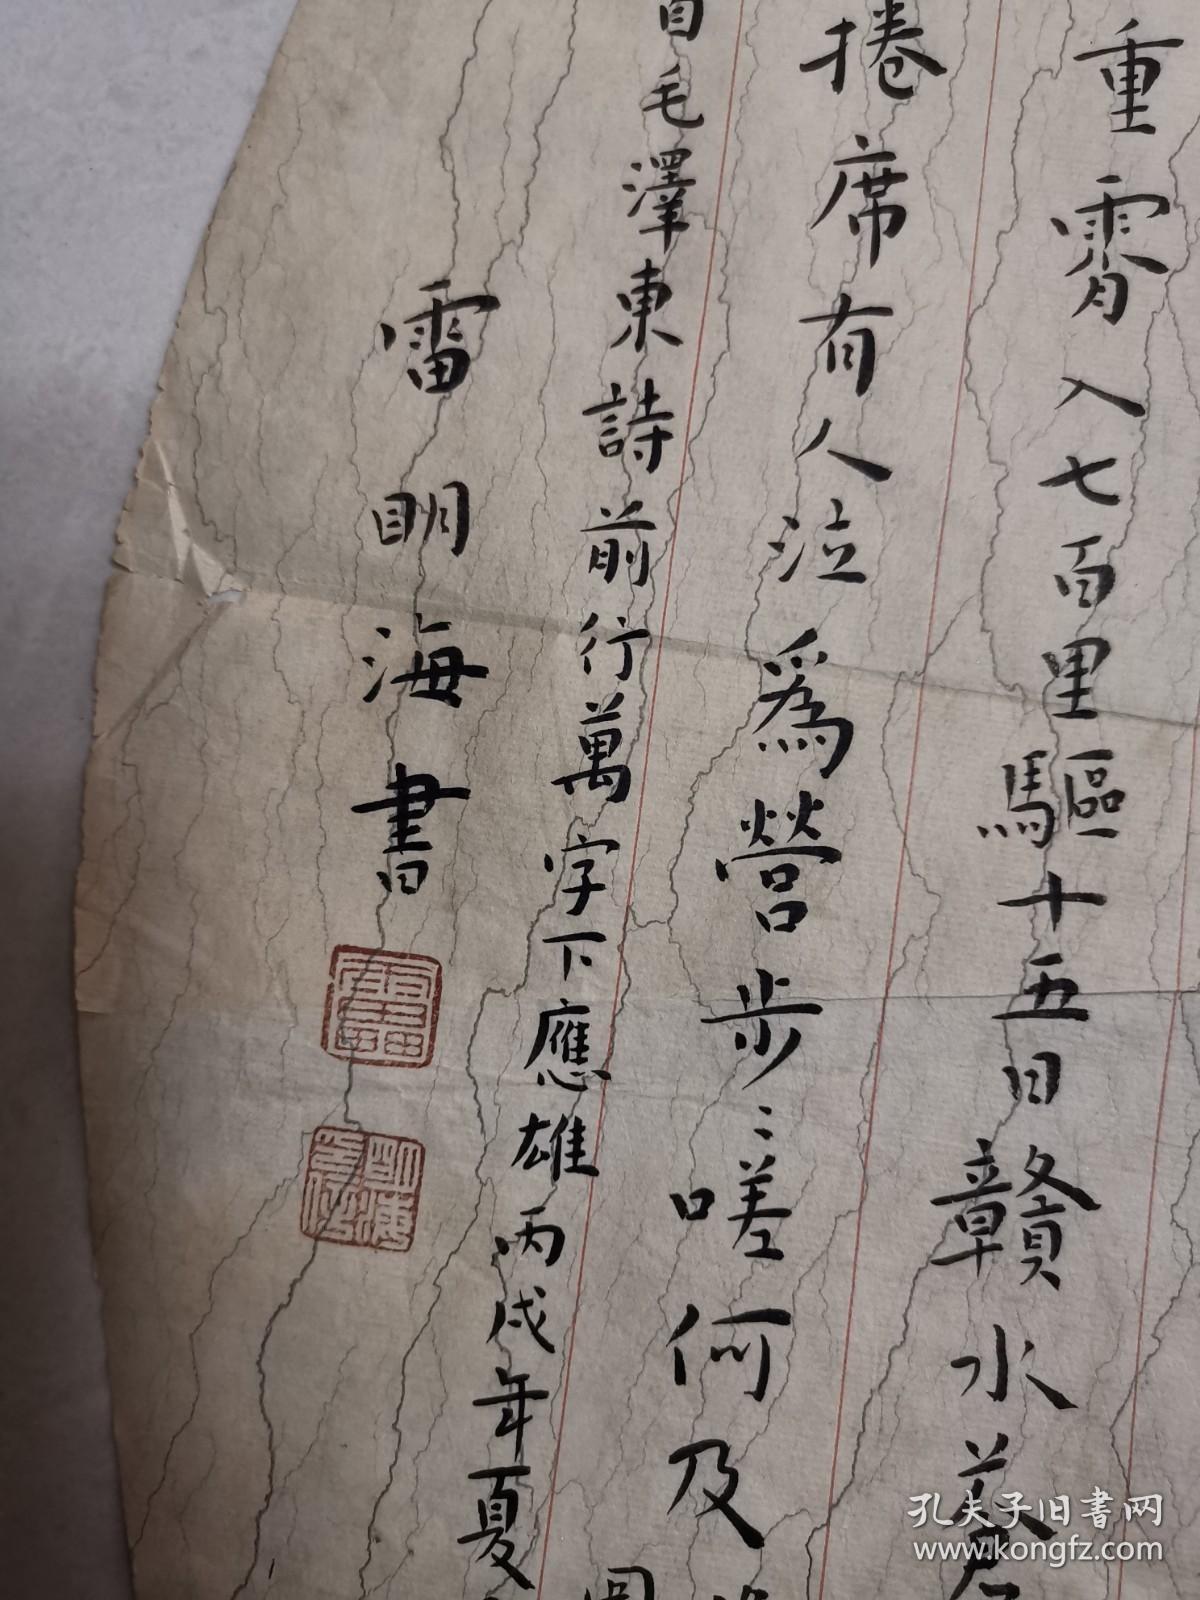 重霄入七百里驅十五日贛水蒼
捲席有人泣爲營步〻嗟何及
毛澤東詩前行萬字下應雄丙戌年夏
雷明海書
孔夫子旧书网
www.kongfz.com